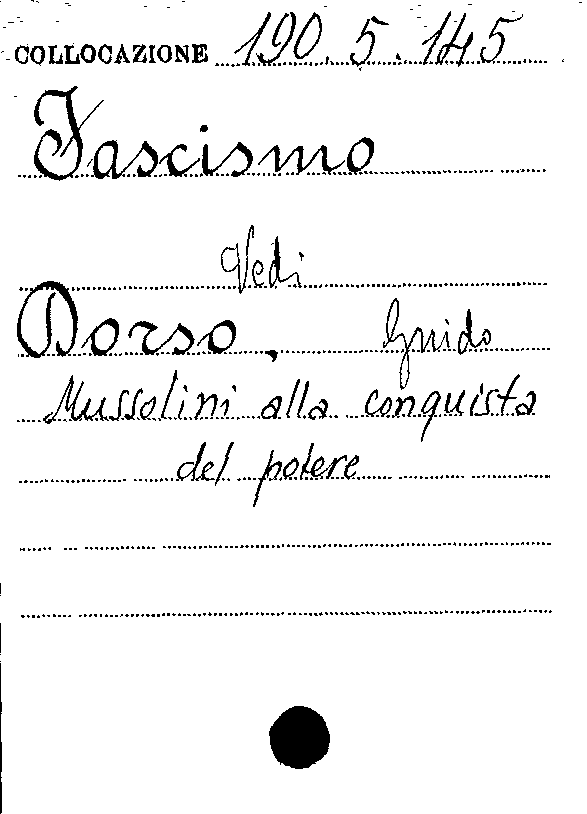 COLLOCAZIONE 190.5.145
Fascismo
Vedi
Dorso, Guido
Mussolini alla conquista
del potere